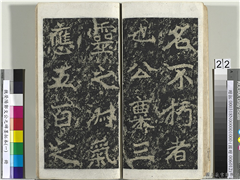 名不朽者
也公稟三
靈之淑氣
應五百之
22